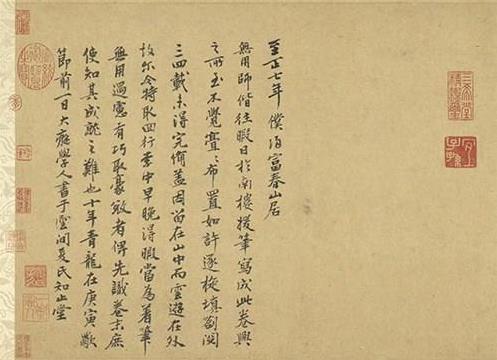 三希堂精鑑璽
宜子孫
至正七年僕歸富春山居
無用師偕往暇日於南樓援筆寫成此卷興
之所至不覺亹亹布置如許逐旋填劄閱
三四載未得完備蓋因留在山中而雲遊在外
故尔今特取回行李中早晚得暇當為著筆
無用過慮有巧取豪敓者俾先識卷末庶
使知其成就之難也十年青龍在庚寅歜
節前一日大癡學人書于雲間夏氏知止堂